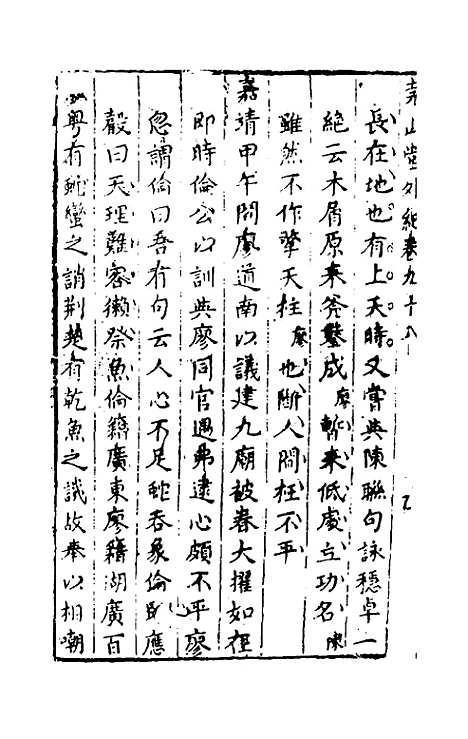 堯山堂外紀卷九十八
長在地也有上天時又嘗與陳聯句詠穩卓一
絕云木屑原来斧鑿成廖暫来低處立功名陳
雖然不作擎天柱廖也斷人間柱不平
嘉靖甲午間廖道南以議建九廟被眷大擢如在
即時倫公以訓典廖同官遇弗逮心頗不平廖
忽謂倫曰吾有句云人心不足蛇吞象倫即應
聲曰天理難容獺祭魚倫籍廣東廖籍湖廣百
粤有蛇蠻之誚荆楚有乾魚之譏故奉以相嘲